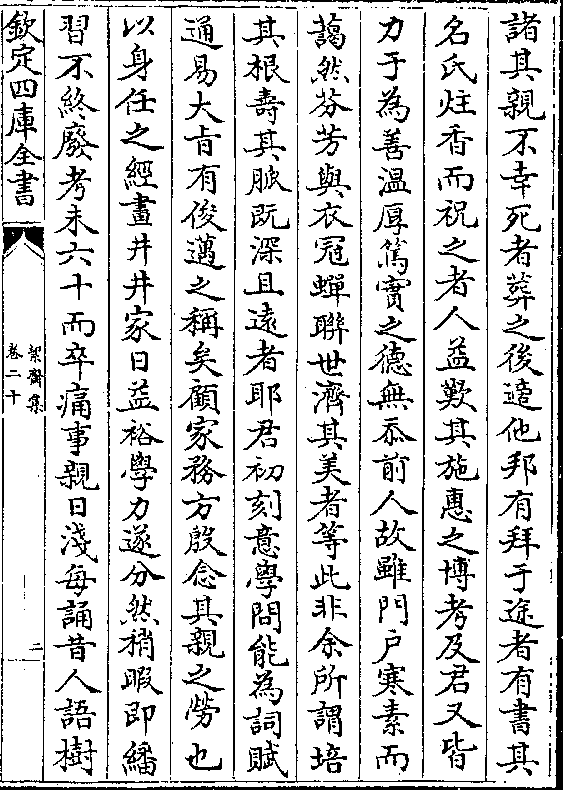 諸其親不幸死者葬之後適他邦有拜于途者有書其
名氏炷香而祝之者人益歎其施惠之博考及君又皆
力于為善溫厚篤實之德無忝前人故雖門戶寒素而
藹然芬芳與衣冠蟬聯世濟其美者等此非余所謂培
其根壽其脈既深且遠者耶君初刻意學問能為詞賦
通易大旨有俊邁之稱矣顧家務方殷念其親之勞也
以身任之經畫井井家日益裕學力遂分然稍暇即繙
習不終廢考未六十而卒痛事親日淺每誦昔人語樹
欽定四庫全書
絜齋集
卷二十
二